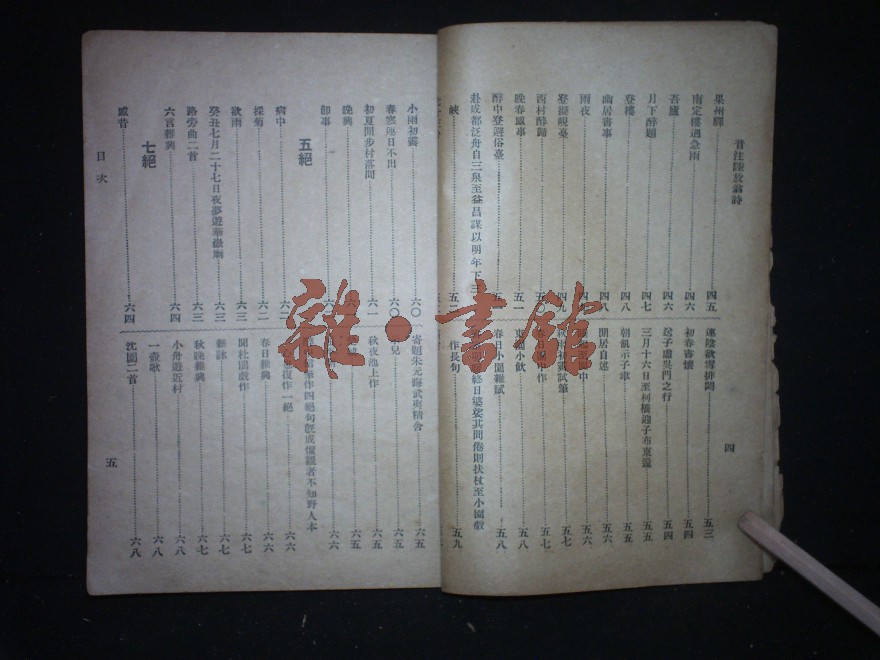 音注陸放翁詩
四
果州驛 四五
南定樓遇急雨 四六
吾廬 四六
月下醉題 四七
登樓 四八
幽居書事 四八
雨夜
登擬峴臺 四九
西村醉歸 五〇
晚春感事 五一
醉中登避俗臺
赴成都泛舟自三泉至益昌謀以明年下三
峽 五二
連陰欲雪排悶 五三
初春書懷 五四
送子虡吳門之行 五四
三月十六日至柯橋迎子布東還 五五
朝飢示子聿 五五
閒居自述 五六
中 五六
試筆 五七
作 五七
東園小飲 五八
春日小園雜賦 五八
終日婆娑其間倦則扶杖至小園戲
作長句 五九
小雨初霽 六〇
春寒連日不出 六〇
初夏閒步村落間 六一
晚興
即事
五絕
病中
採菊 六二
欲雨 六三
癸丑七月二十七日夜夢遊華嶽廟 六三
路旁曲二首 六三
六言雜興 六四
七絕
感昔 六四
寄題朱元晦武夷精舍 六五
兒 六五
秋夜池上作 六五
六五
六六
作四絕句既成儻觀者不知野人本
復作一絕 六六
春日雜興 六六
聞杜鵑戲作 六七
雜詠 六七
秋晚雜興 六七
小舟遊近村 六八
一壺歌 六八
沈園二首 六八
目次
五
雜·書館